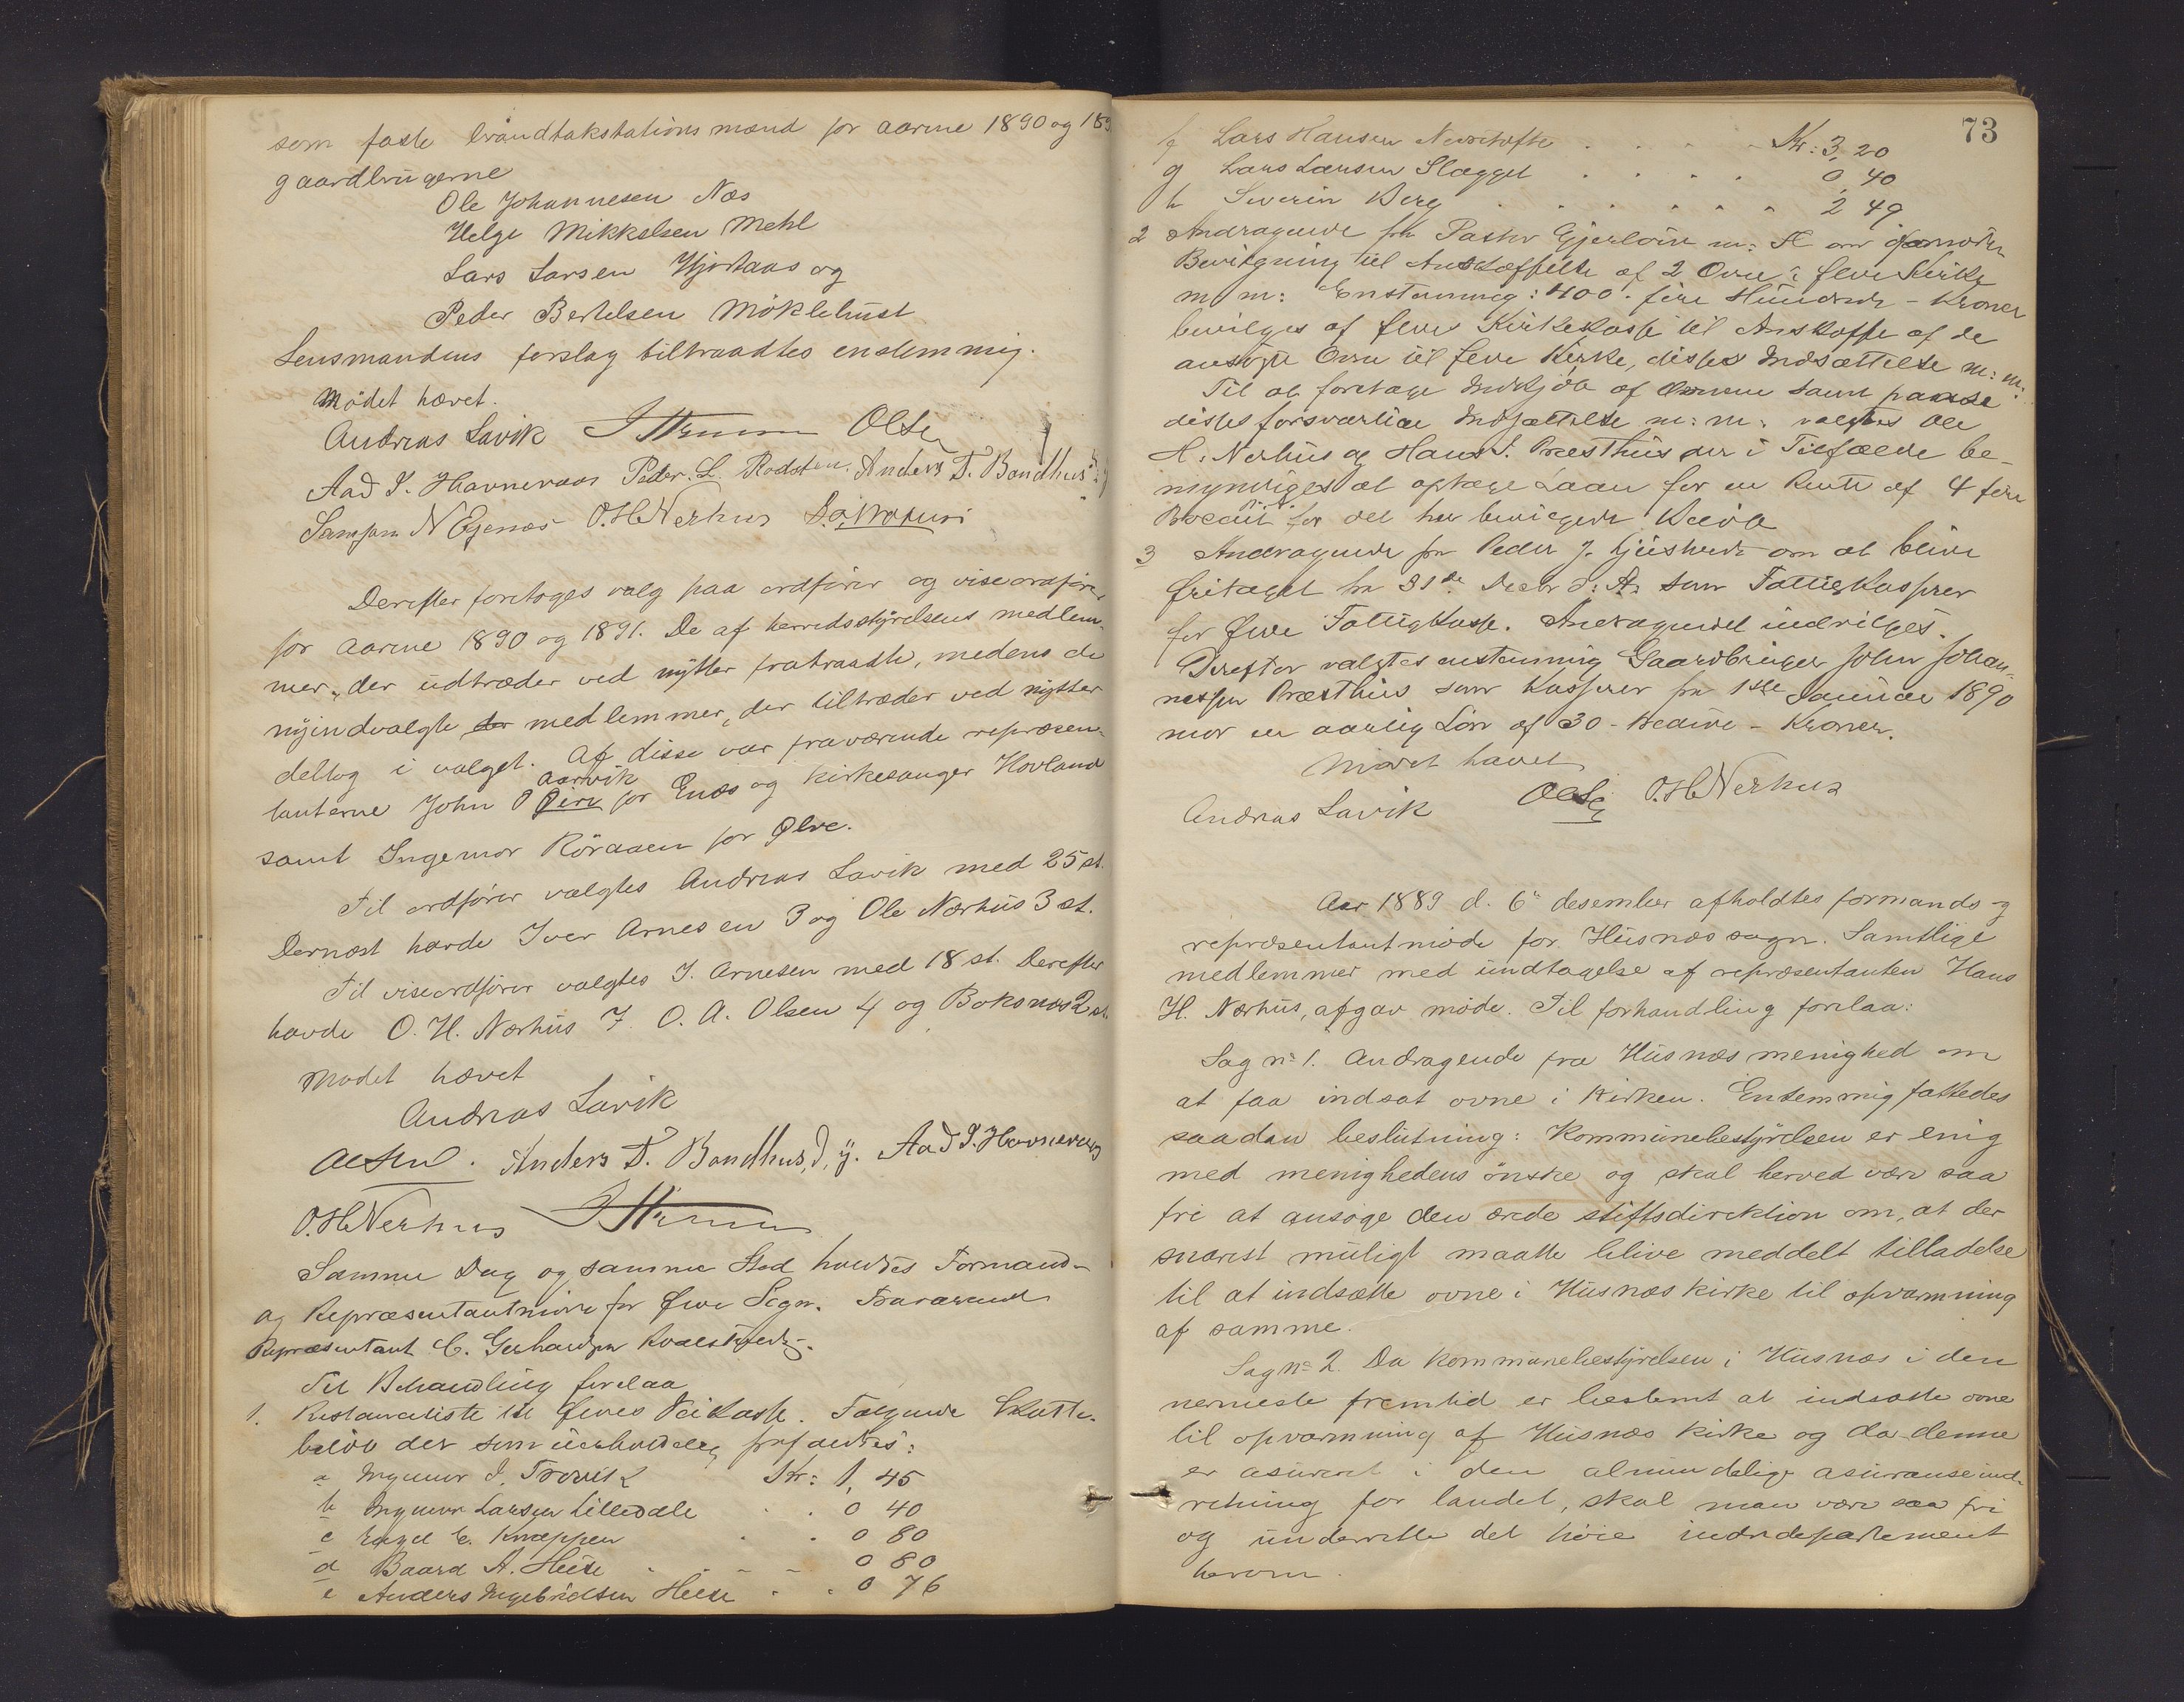 som faste brandtakstationsmænd for aarene 1890 og 189
gaardbrugerne
Ole Johannesen Næs
Helge Mikkelsen Mehl
Lars Larsen Hjortaas og
Peder Bertelsen Møklebust
Lensmandens forslag tiltraadtes enstemmig.
Mødet hævet.
Andreas Lavik Olsen
Aad J. Havneraas Peder L. Rodsten. Anders T. Bondhus
Samson N Egenæs O.H Nerhus
Derefter foretoges valg paa ordfører og viseordfører
for aarene 1890 og 1891. De af herredsstyrelsens medlem-
mer, der udtræder ved nytter fratraadte, medens de
nyindvalgte der medlemmer, der tiltræder ved nytter
deltog i valget. Af disse var fraværende repræsen-
tanterne John O Øire Aarvik for Enæs og kirkesanger Hovland
samt Ingemor Røraaen for Ølve.
Til ordfører valgtes Andreas Lavik med 25 st.
Dernæst havde Iver Arnesen 3 og Ole Nærhus 3 st.
Til viseordfører valgtes I. Arnesen med 18 st. Derefter
havde O. H. Nærhus 7. O. A. Olsen 4 og Boksnæs 2 st.
Mødet hævet
Andreas Lavik
Olsen. Anders T. Bondhus, d, y. Aad J. Havneraas
O.H Nerhus
Samme Dag og samme Sted holdtes Formand-
og Repræsentantmøde for Ølve Sogn. Fraværende
Repræsentant C. Gerhardsen Kvalstjed.
Til Behandling forelaa
1. Restanceliste til Ølves Veikasse. Følgende Skatte-
beløb der som uerholdelig frafaldtes:
a Ingemor I. Trovik Kr: 1,45
b Ingemor Larsen Lilledale . . 0 40
c Engel E. Knappen . . 0 80
d Baard A. Heese . . . 0 80
e Anders Ingebrigtsen Heese . . 0 76
73
f Lars Hansen . . . . Kr: 3,20
g Lars Larsen Slægget . . . . 0,40
h Severin Berg . . . . . . . 2 49
2 Andragende fra Pastor Gjerløw m: Fl om
Bevilgning til Anskaffelse af 2 Ovne i Ølve Kirke
m m: Enstemmig: 400. fire Hundrede - Kroner
bevilges af Ølve Kirkekasse til Anskaffe af de
ansøgte Ovne til Ølve Kirke, disses Indsættelse m: m.
Til at foretage Indkjøb af Ovnene samt paase
disses forsvarlige Indsættelse m: m. valgtes Ole
H. Nerhus og Hans J. Præsthus der i Tilfælde be-
myndiges at optage Laan for en Rente af 4 fire
Procent for det her bevilgede Beløb
3 Andragende fra Peder J. om at blive
fritaget fra 31te Decbr d: A: som Fattigkasserer
for Ølve Fattigkasse. Andragendet indvilges.
Derefter valgtes enstemmig Gaardbruger John Johan-
nessen Præsthus som Kasserer fra 1ste Januar 1890
mod en aarlig Løn af 30 - tredive - Kroner.
Mødet hævet
Andreas Lavik Olsen O.H Nerhus
Aar 1889 d. 6te desember afholdtes formands og
repræsentantmøde for Husnæs sogn. Samtlige
medlemmer med undtagelse af repræsentanten Hans
H. Nærhus, afgav møde. Til forhandling forelaa:
Sag no 1. Andragende fra Husnæs menighed om
at faa indsat ovne i Kirken. Enstemmig fattedes
saadan beslutning: Kommunebestyrelsen er enig
med menighedens ønske og skal herved være saa
fri at ansøge den ærede stiftsdirektion om, at der
snarest muligt maatte blive meddelt tilladelse
til at indsætte ovne i Husnæs kirke til opvarmning
af samme.
Sag no 2. Da kommunebestyrelsen i Husnæs i den
nermeste fremtid er bestemt at indsætte ovne
til opvarmning af Husnæs kirke og da denne
er asureret i den almindelige asuranseind-
retning for landet, skal man være saa fri
og underrette det høie indredepartement
herom.